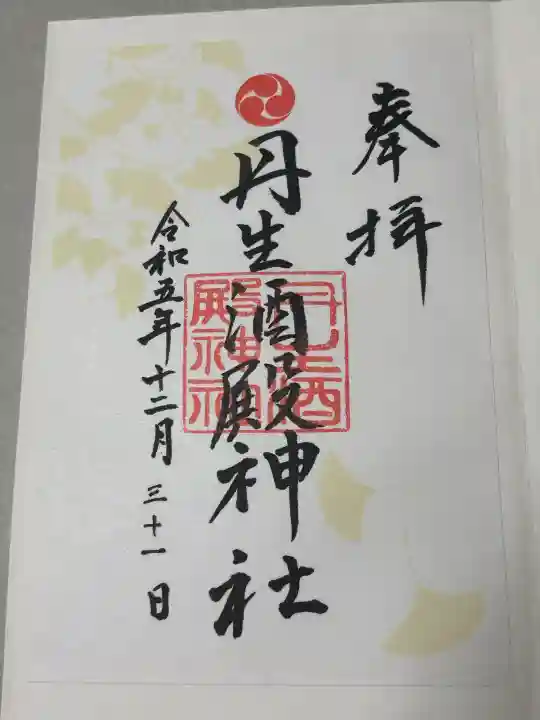 奉拝
丹生酒殿神社
丹生酒殿神社
令和五年十二月三十一日